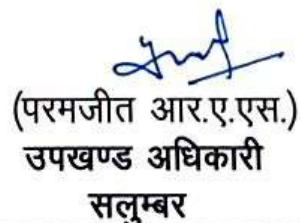 (परमजीत आर.ए.एस.)
उपखण्ड अधिकारी
सलुम्बर